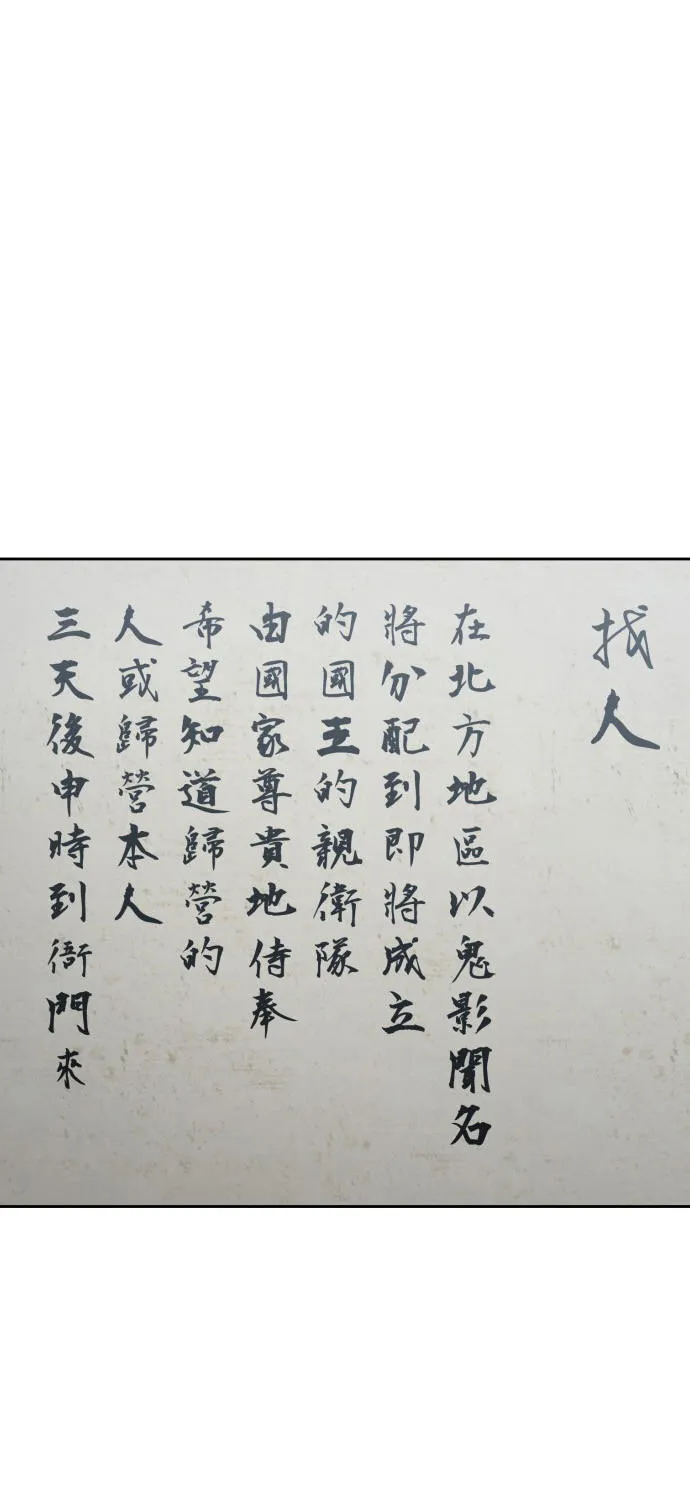 找人
在北方地區以鬼影聞名
將分配到即將成立
的國王的親衛隊
由國家尊貴地侍奉
希望知道歸營的
人或歸營本人
三天後申時到衙門來